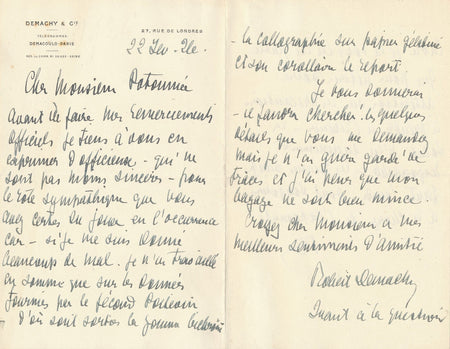 DEMACHY & Cie
TÉLÉGRAMMES
DEMACOULO-PARIS
27, RUE DE LONDRES
22
Cher Monsieur Potonniée
Avant de faire mes remerciements
officiels je tiens à vous en
exprimer d'officieux - qui ne
sont pas moins sincères - pour
le rôle sympathique que vous
avez certes du jouer en l'occurrence
car - si je me suis donné
beaucoup de mal. je n'ai travaillé
en somme que sur les données
fournies par le fécond Poitevin
D'où sont sortis la gomme bichromie
- la collographie sur papier gélatiné
et son corollaire le report.
Je vous donnerai
- je
cherché les quelques
détails que vous me demandez
mais je n'ai guère gardé de
traces et j'ai peur que mon
bagage ne soit bien mince.
Croyez cher Monsieur à mes
meilleurs sentiments d'amitié
Robert Demachy